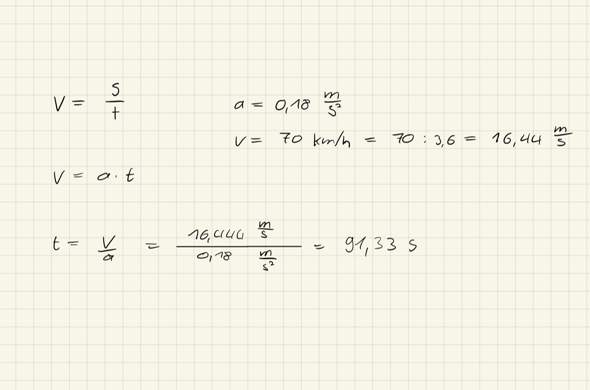 V = s/t
a = 0,18 m/s²
v = 70 km/h = 70 : 3,6 = 16,44 m/s
V = a · t
t = V/a = 16,444 m/s / 0,18 m/s² = 91,33 s